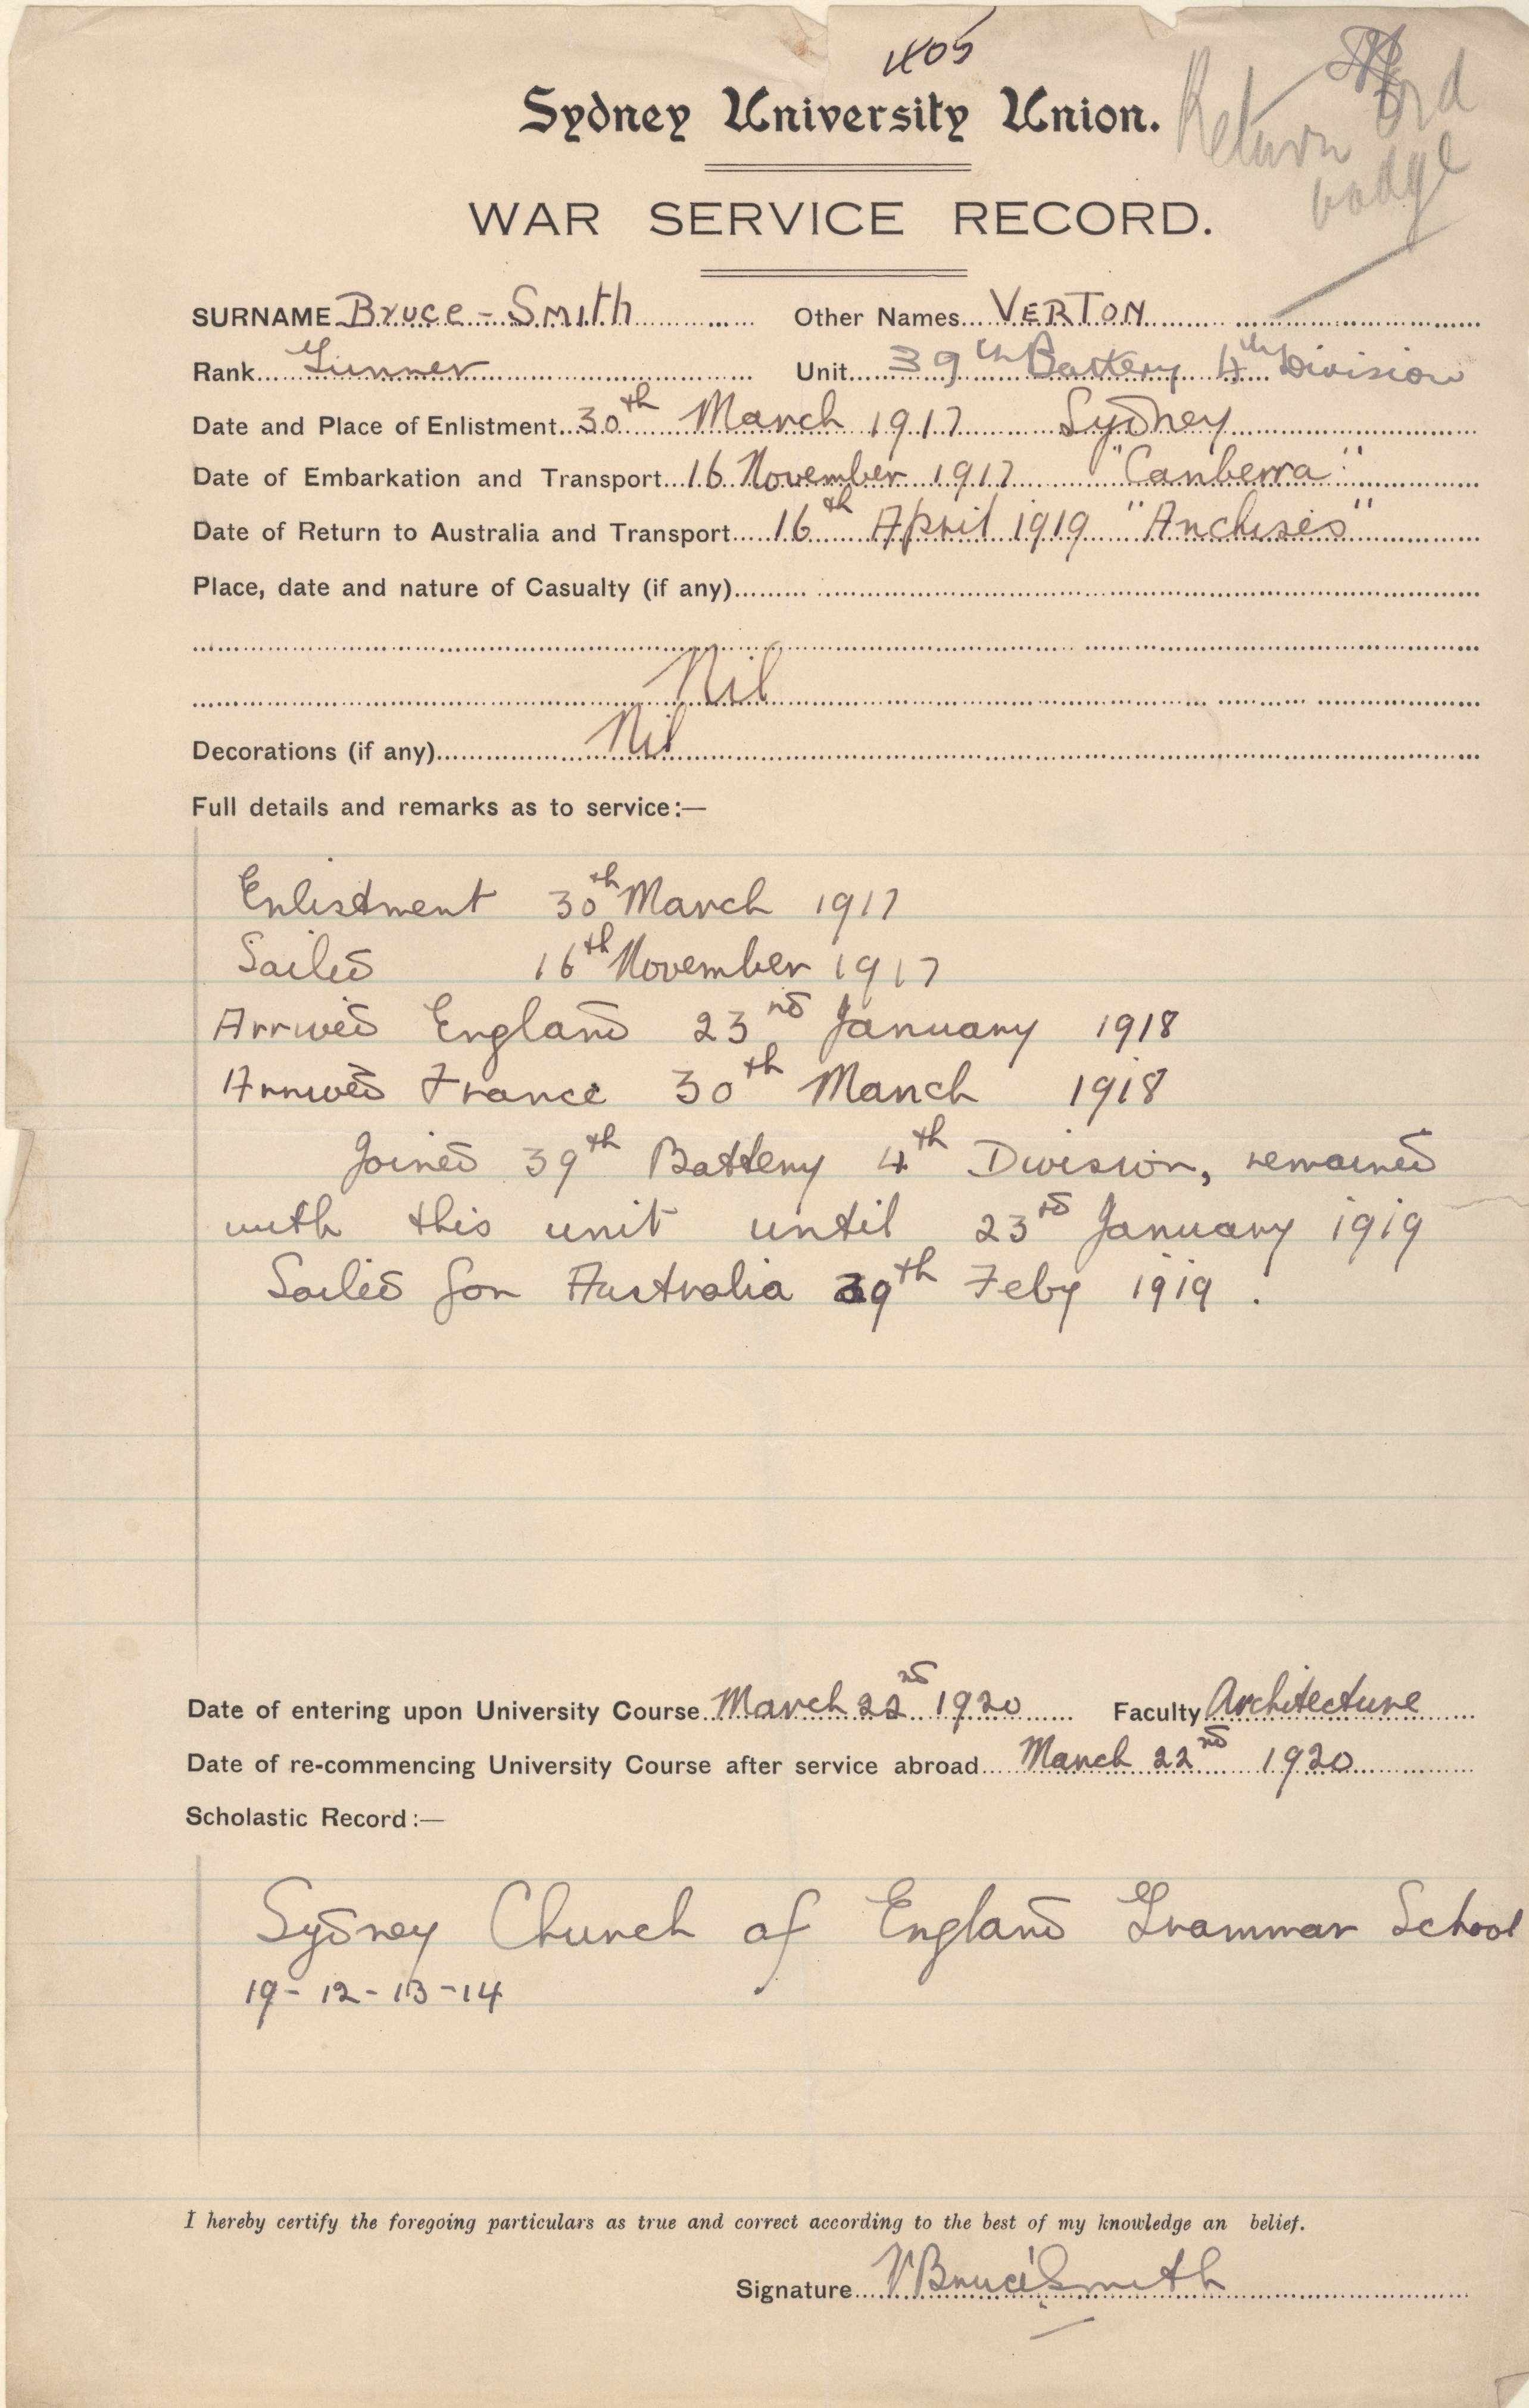 405
Sydney University Union.
Return
badge
WAR SERVICE RECORD.
SURNAME Bruce-Smith Other Names VERTON
Rank Gunner Unit 39th Battery 4th Division
Date and Place of Enlistment 30th March 1917 Sydney
Date of Embarkation and Transport 16 November 1917 "Canberra"
Date of Return to Australia and Transport 16th April 1919 "Anchises"
Place, date and nature of Casualty (if any)
Nil
Decorations (if any) Nil
Full details and remarks as to service:—
Enlistment 30th March 1917
Sailed 16th November 1917
Arrived England 23rd January 1918
Arrived France 30th March 1918
Joined 39th Battery 4th Division, remained
with this unit until 23rd January 1919
Sailed for Australia th Feby 1919.
Date of entering upon University Course March 22nd 1920 Faculty Architecture
Date of re-commencing University Course after service abroad March 22nd 1920
Scholastic Record:—
Sydney Church of England Grammar School
19-12-13-14
I hereby certify the foregoing particulars as true and correct according to the best of my knowledge an belief.
Signature V Bruce Smith